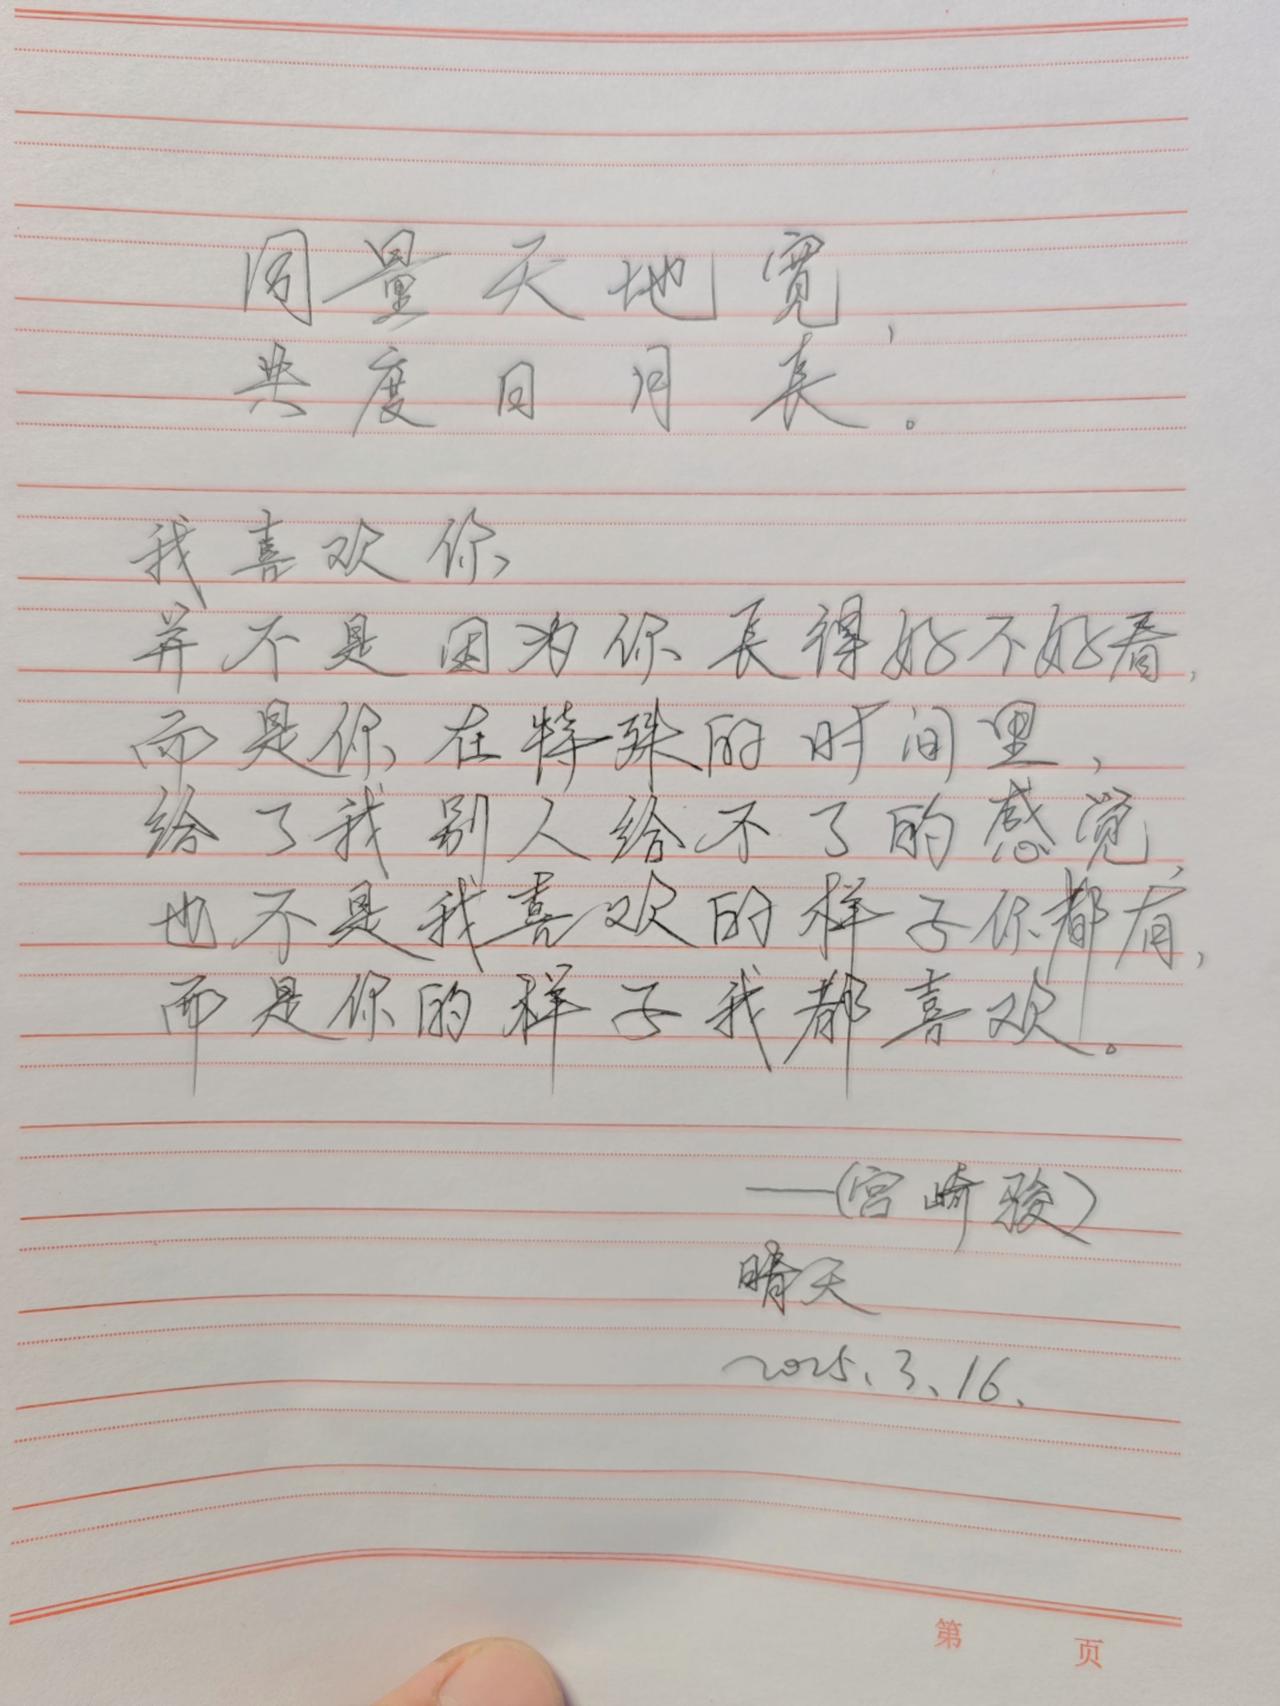 同量天地寛，
共度日月長。
我喜欢你，
并不是因为你長得好不好看，
而是你在特殊的时间里，
给了我别人给不了的感觉，
也不是我喜欢的样子你都有，
而是你的样子我都喜欢。
——(宫崎骏)
晴天
2025.3.16.
第 页